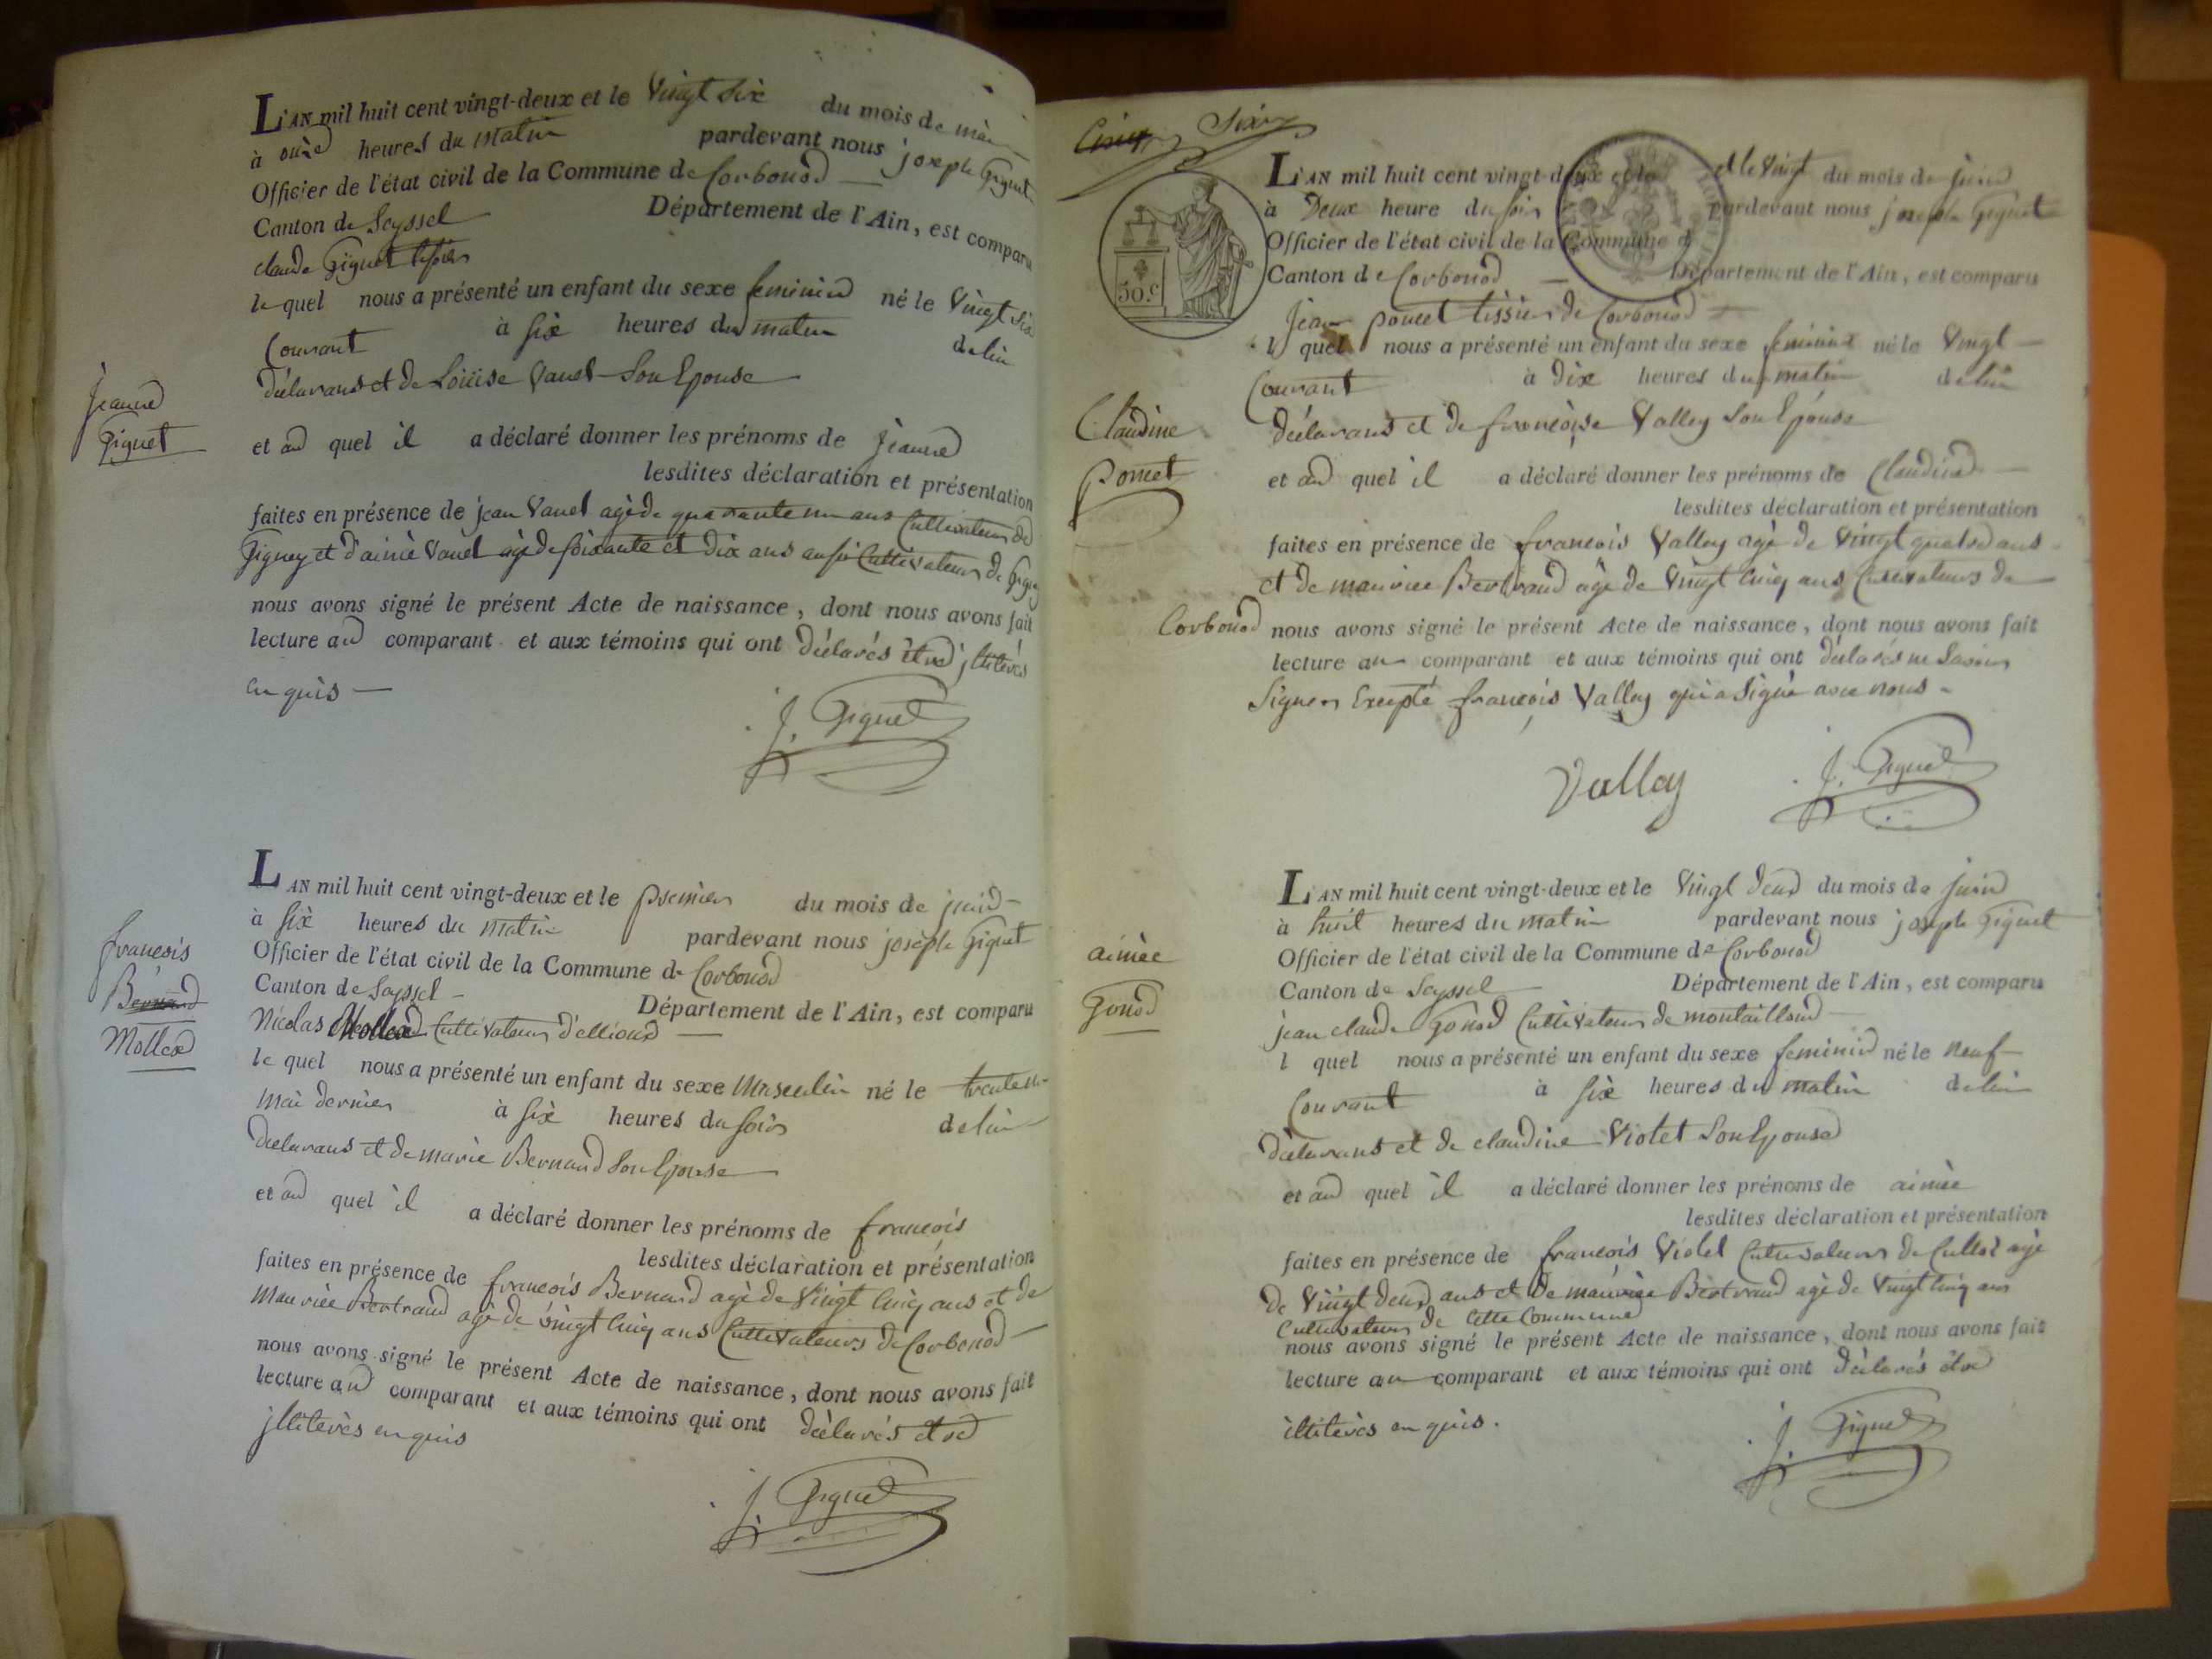 L'AN mil huit cent vingt-deux et le Vingt Six du mois de mai
à onze heures du matin pardevant nous joseph Giguet
Officier de l'état civil de la Commune de Corbonod
Canton de Seyssel Département de l'Ain, est comparu
claude Giguet
le quel nous a présenté un enfant du sexe feminin né le Vingt six
Courant à Six heures du matin de lui
déclarant et de Loüise Vanel Son Epouse
Jeanne
Giguet
et au quel il a déclaré donner les prénoms de Jeanne
lesdites déclaration et présentation
faites en présence de jean Vanel agé de quarante un ans Cultivateur de
Gigney et d'aimé Vanel agé de soixante et Dix ans aussi Cultivateur de
nous avons signé le présent Acte de naissance, dont nous avons fait
lecture au comparant et aux témoins qui ont déclarés être jllitérés
enquis
J. Giguet
L'AN mil huit cent vingt-deux et le premier du mois de juin
à Six heures du matin pardevant nous joseph Giguet
Officier de l'état civil de la Commune de Corbonod
Canton de Seyssel Département de l'Ain, est comparu
francois
Bernard
Mollex
Nicolas Mollex Cultivateur d'
le quel nous a présenté un enfant du sexe Masculin né le trente un
Mai dernier à Six heures du soir de lui
déclarant et de marie Bernard Son Epouse
et au quel il a déclaré donner les prénoms de francois
lesdites déclaration et présentation
faites en présence de francois Bernard agé de Vingt Cinq ans et de
Maurice Bertrand agé de vingt Cinq ans Cultivateurs de Corbonod
nous avons signé le présent Acte de naissance, dont nous avons fait
lecture au comparant et aux témoins qui ont déclarés être
jllitérés enquis
J. Giguet
Cinq Six
L'AN mil huit cent vingt-deux et le et le Vingt du mois de juin
à Deux heure du soir pardevant nous joseph Giguet
Officier de l'état civil de la Commune d
Canton de Corbonod Département de l'Ain, est comparu
50.c
Jean poncet tissier de Corbonod
l quel nous a présenté un enfant du sexe feminin né le Vingt
Courant à Dix heures du matin de lui
Claudine
Poncet
déclarant et de francoise Valley Son Epouse
et au quel il a déclaré donner les prénoms de Claudine
lesdites déclaration et présentation
faites en présence de francois Valley agé de Vingt quatre ans
et de maurice Bertrand agé de Vingt Cinq ans Cultivateurs de
Corbonod nous avons signé le présent Acte de naissance, dont nous avons fait
lecture au comparant et aux témoins qui ont déclarés ne Savoir
Signer Excepté francois Valley qui a Signé avec nous
Valley J. Giguet
L'AN mil huit cent vingt-deux et le Vingt deux du mois de juin
à huit heures du matin pardevant nous joseph Giguet
Officier de l'état civil de la Commune de Corbonod
Canton de Seyssel Département de l'Ain, est comparu
aimée
Gonod
jean claude Gonod Cultivateur de montailloud
l quel nous a présenté un enfant du sexe feminin né le neuf
Courant à Six heures du matin de lui
déclarant et de claudine Violet Son Epouse
et au quel il a déclaré donner les prénoms de aimée
lesdites déclaration et présentation
faites en présence de francois Violet Cultivateur de agé
de Vingt deux ans et de maurice Bertrand agé de Vingt Cinq ans
Cultivateurs de Cette Commune
nous avons signé le présent Acte de naissance, dont nous avons fait
lecture au comparant et aux témoins qui ont déclarés être
illitérés enquis.
J. Giguet